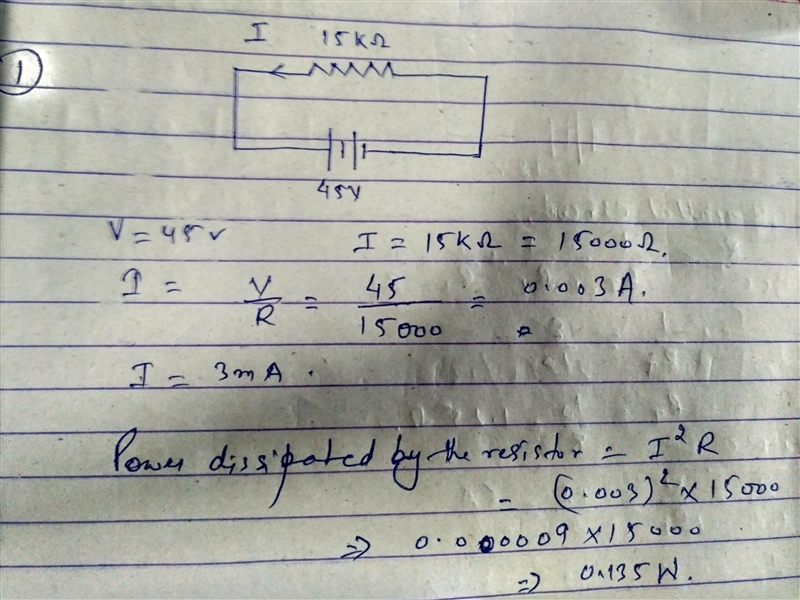 I 15KΩ
1
45V
V = 45v I = 15KΩ = 15000Ω.
I = V/R = 45/15000 = 0.003A.
I = 3mA.
Power dissipated by the resistor = I²R
= (0.003)² × 15000
⇒ 0.000009 × 15000
⇒ 0.135W.